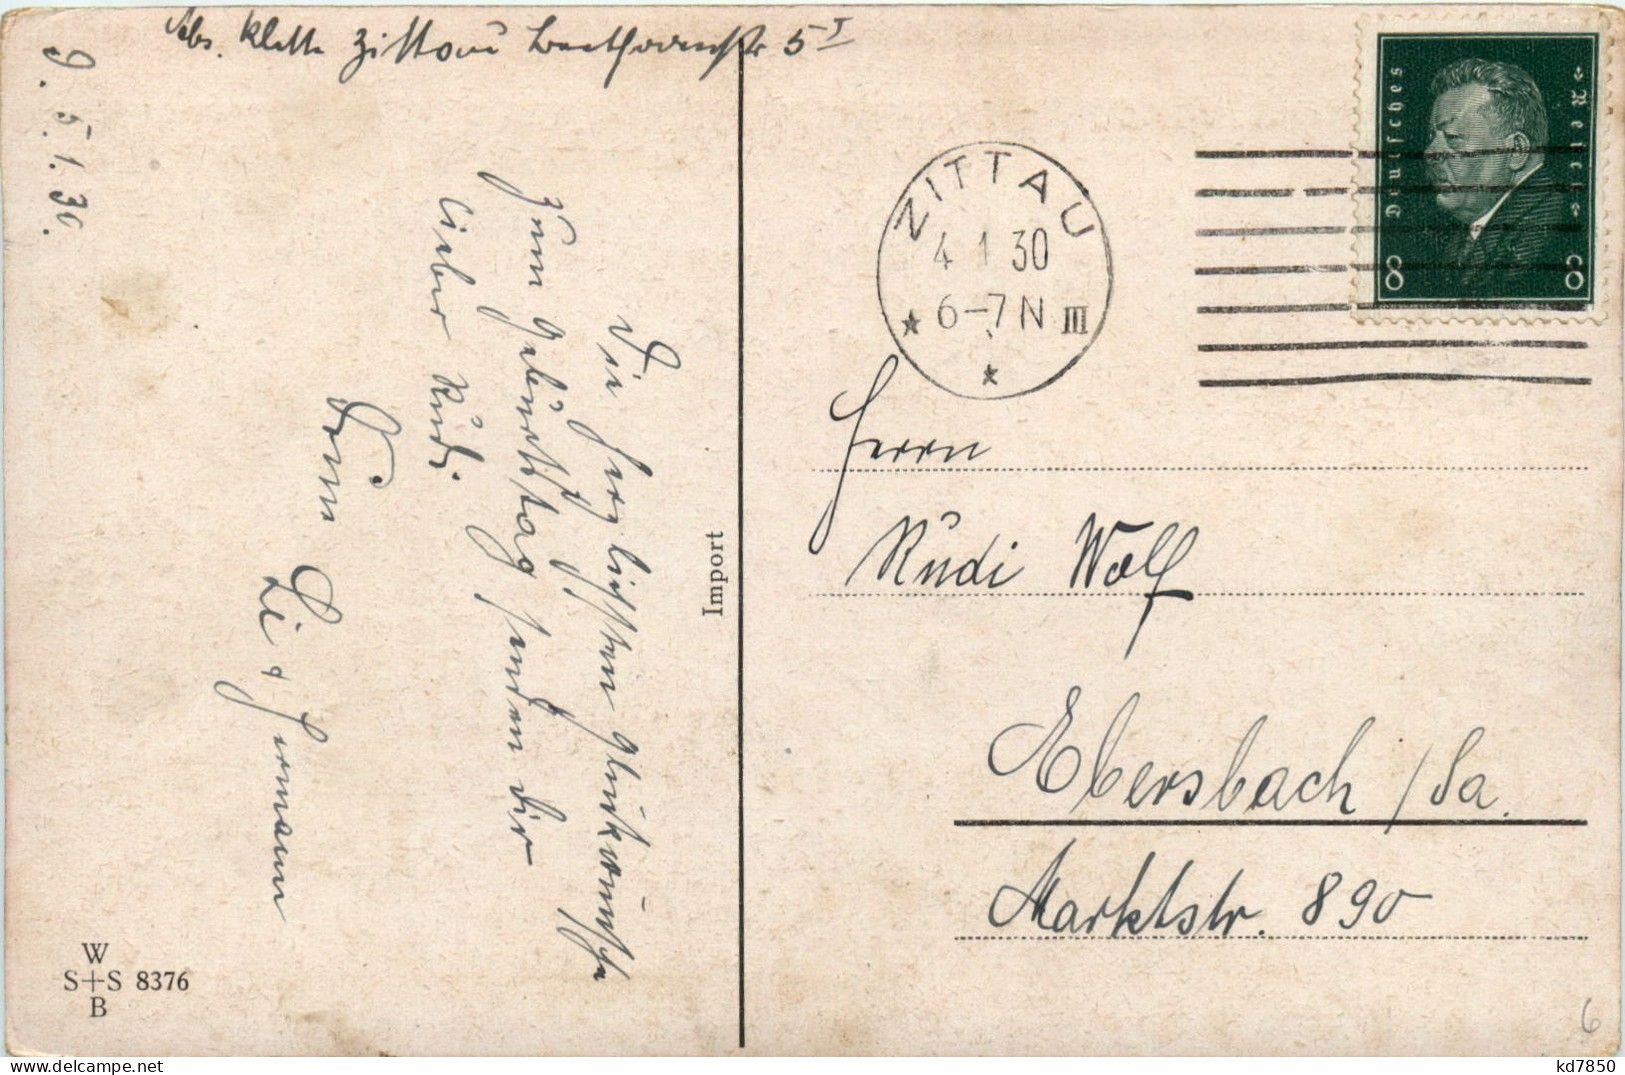 Abs. Klette Zittau Beethovenstr 5 I
9. 5.1.30.
Die herzlichsten Glückwünsche
zum Geburtstag senden dir
lieber Rudi.
Deine
Li & Hermann
Import
W
S+S 8376
B
ZITTAU
4 1 30
6-7 N III
Deutsches Reich
8 8
Herrn
Rudi Wolf
Ebersbach /Sa.
Marktstr. 890
6
kd7850